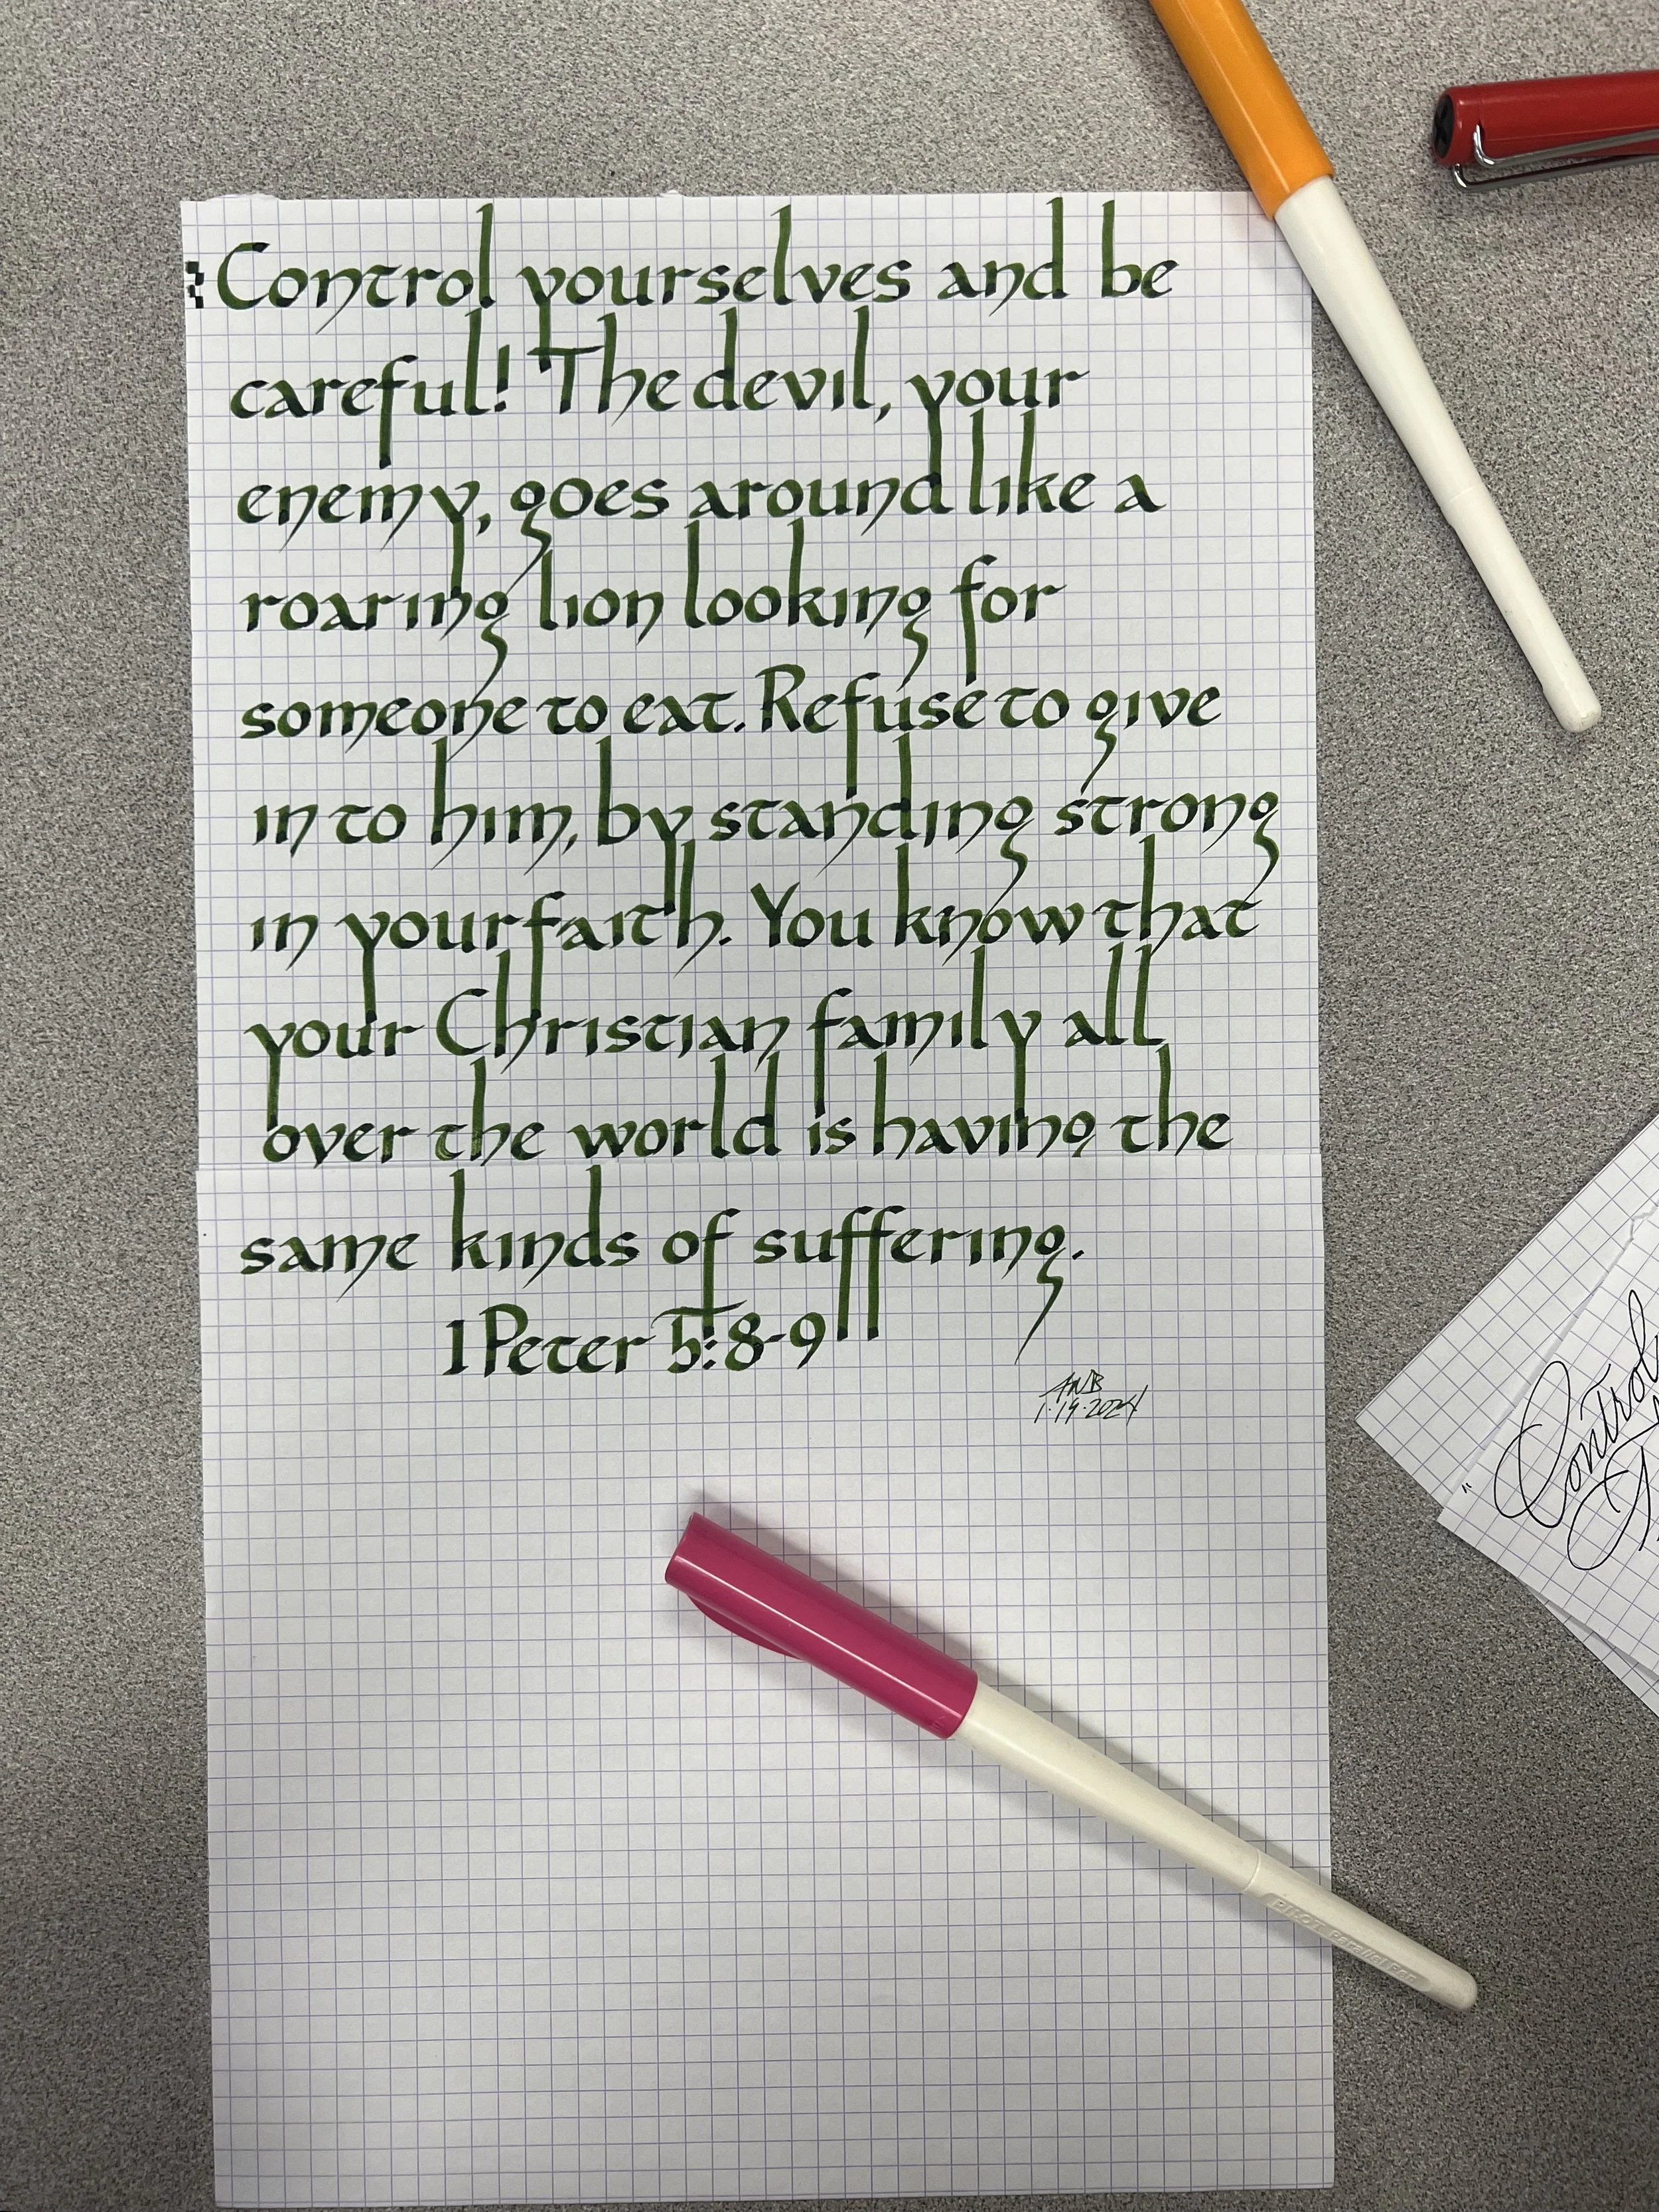 Control yourselves and be
careful! The devil, your
enemy, goes around like a
roaring lion looking for
someone to eat. Refuse to give
in to him, by standing strong
in your faith. You know that
your Christian family all
over the world is having the
same kinds of suffering.
1 Peter 5:8-9
ANB
1·19·2024
Control
PILOT Parallel Pen